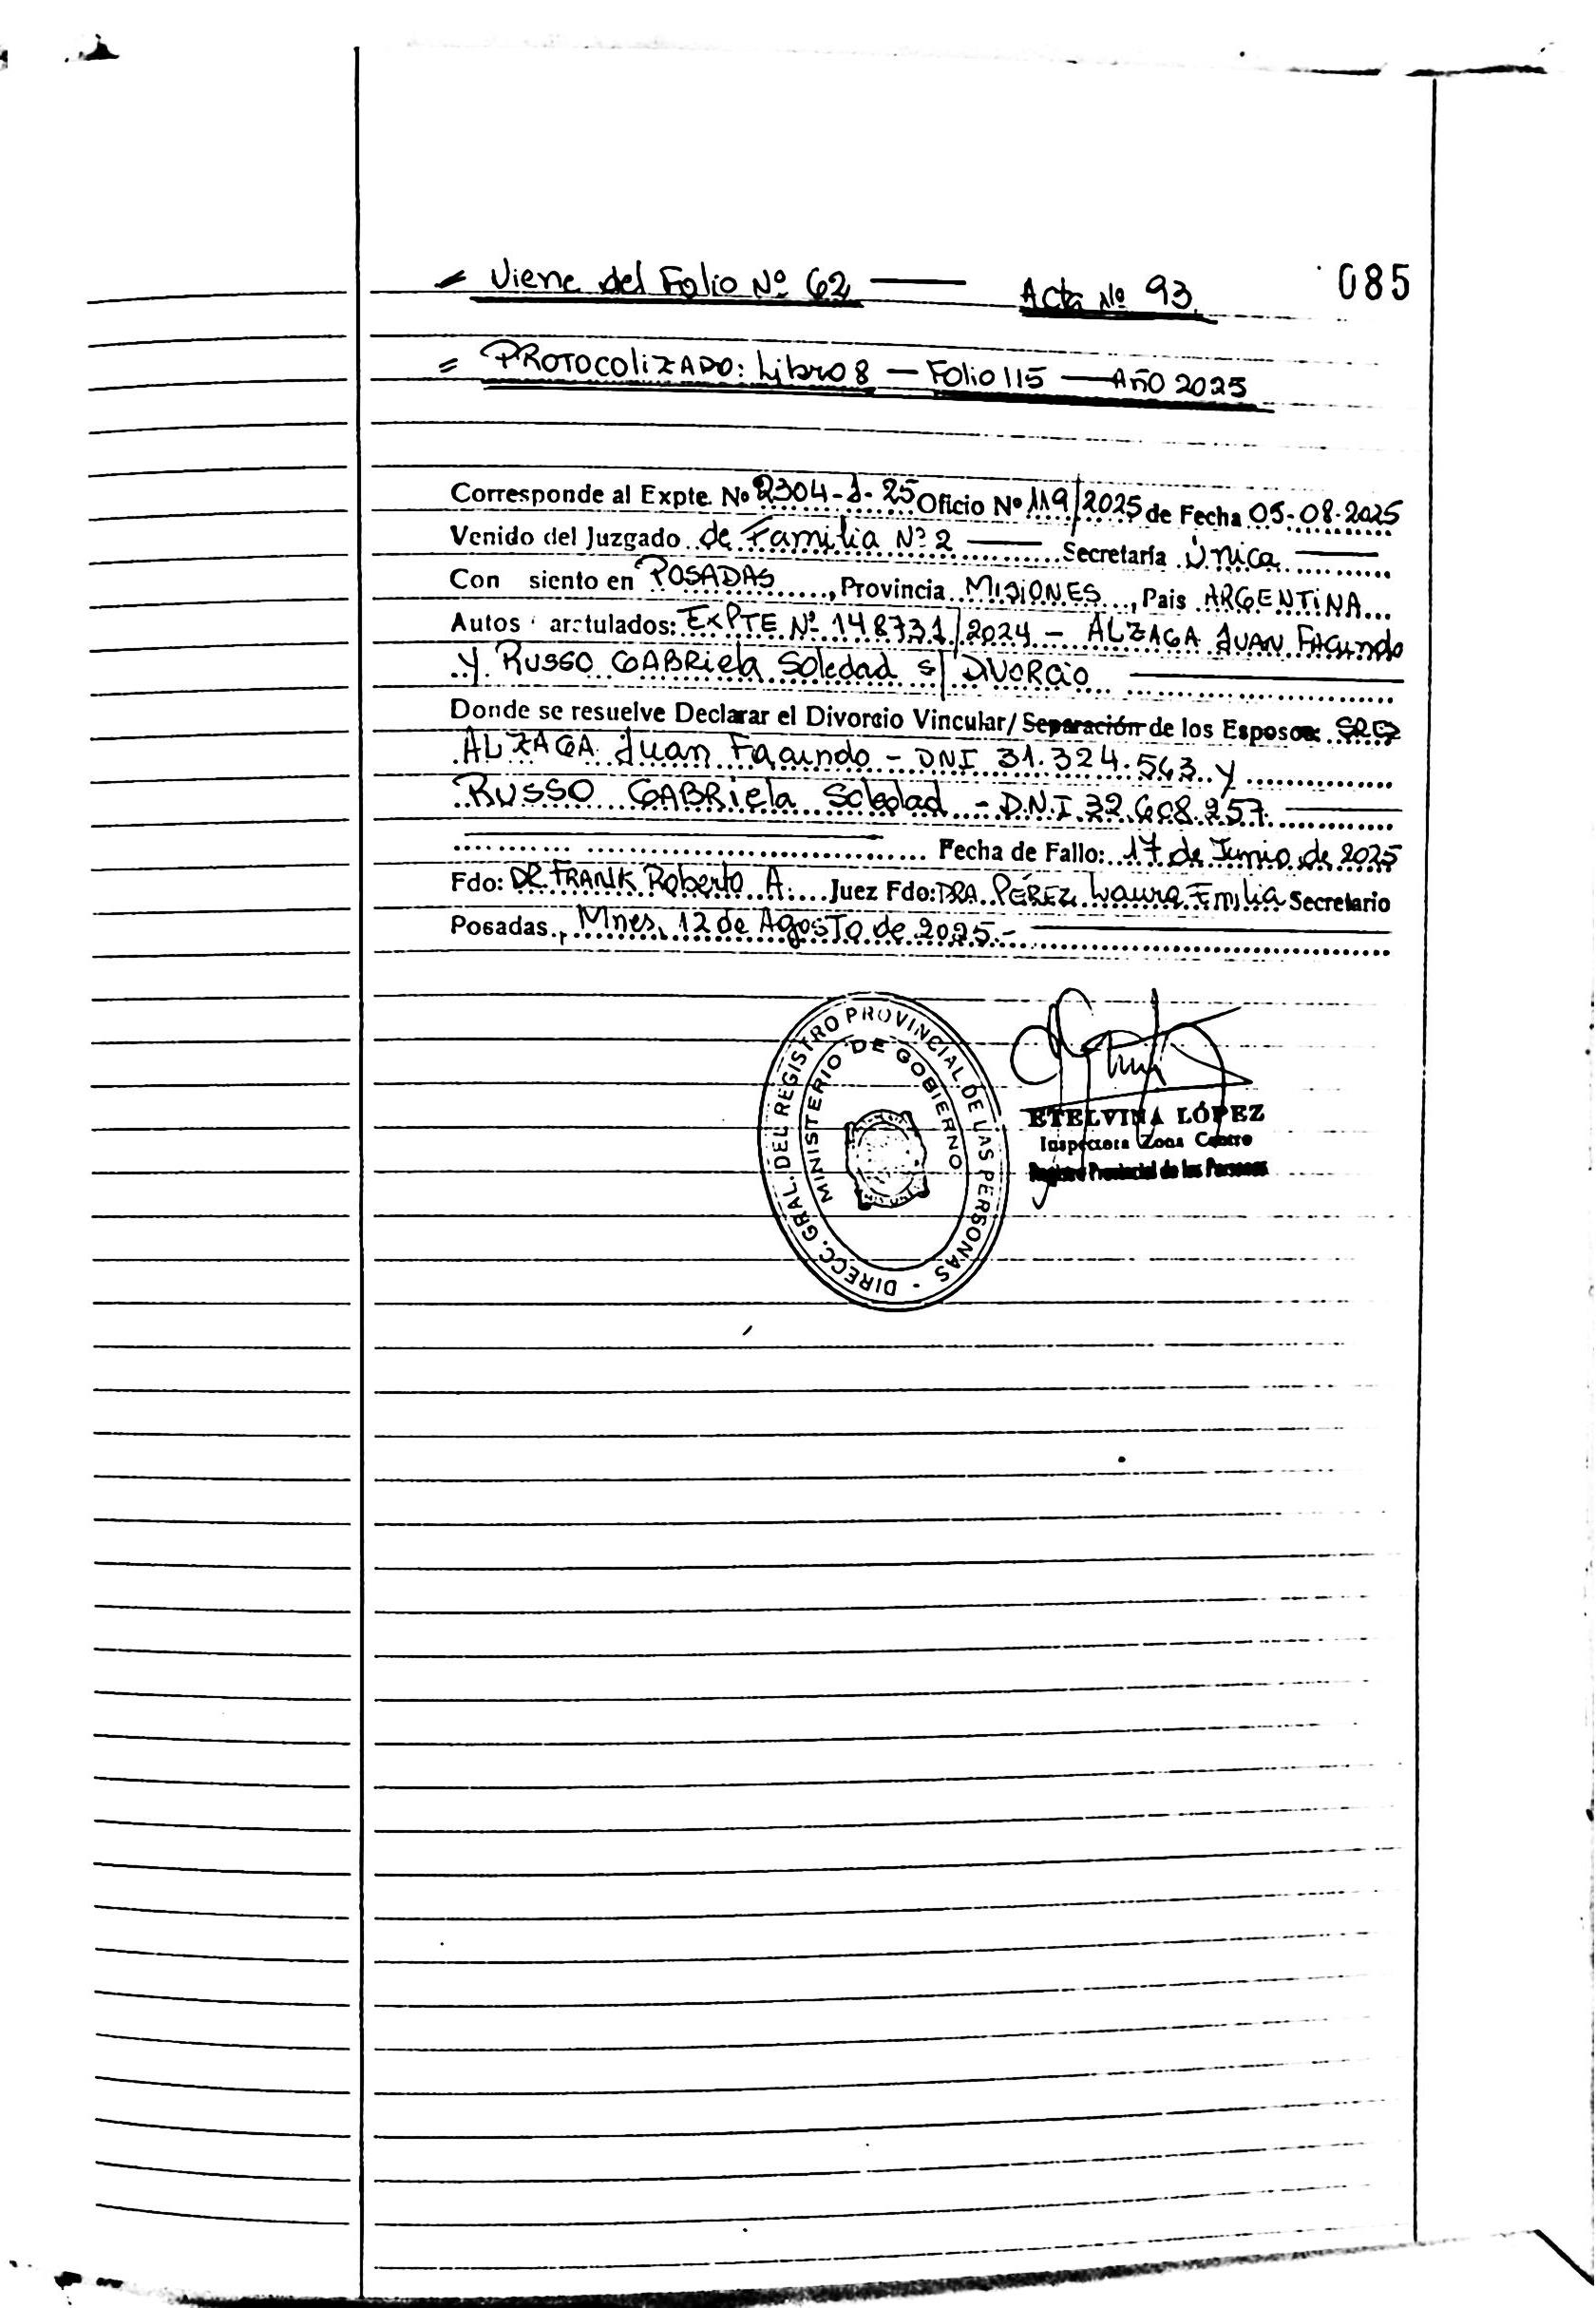 Viene del Folio Nº 62 — Acta Nº 93.
085
= PROTOCOLIZADO: Libro 8 — Folio 115 — AÑO 2025
Corresponde al Expte. Nº 2304-J-25 Oficio Nº 119/2025 de Fecha 05-08-2025
Venido del Juzgado de Familia Nº 2 — Secretaría Única —
Con siento en POSADAS, Provincia MISIONES, Pais ARGENTINA...
Autos aratulados: EXPTE Nº 148731/2024 - ALZAGA JUAN FACUNDO
Y RUSSO GABRIELA Soledad s/ DIVORCIO —
Donde se resuelve Declarar el Divorcio Vincular/ Separación de los Esposos: SRES
ALZAGA Juan Facundo - DNI 31.324.563 y
RUSSO GABRIELA Soledad - D.N.I 32.608.257 —
Fecha de Fallo: 17 de Junio de 2025
Fdo: DR FRANK Roberto A. Juez Fdo: DRA. PÉREZ Laura Emilia Secretario
Posadas, Mnes, 12 de Agosto de 2025.-
DIRECC. GRAL. DEL REGISTRO PROVINCIAL DE LAS PERSONAS -
MINISTERIO DE GOBIERNO
ETELVINA LÓPEZ
Inspectora Zona Centro
Registro Provincial de las Personas